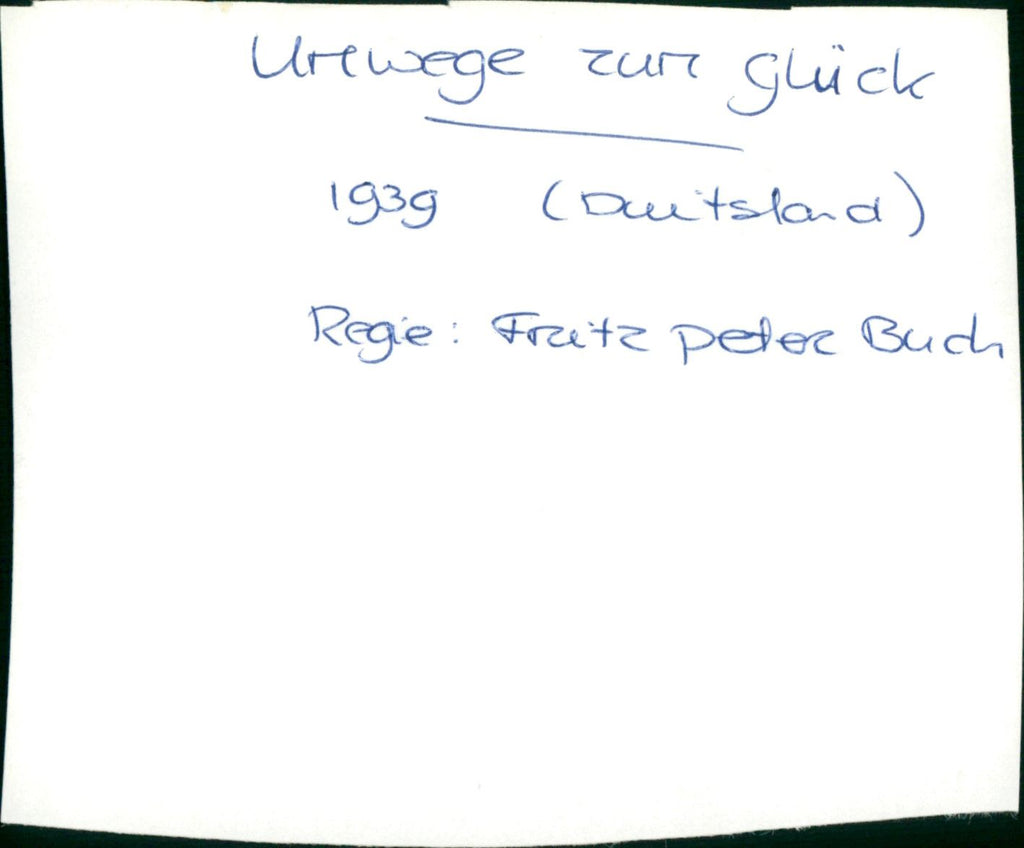 Umwege zum Glück
1939 (Duitsland)
Regie: Fritz Peter Buch